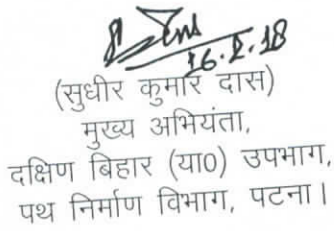 16.8.18
(सुधीर कुमार दास)
मुख्य अभियंता,
दक्षिण बिहार (या0) उपभाग,
पथ निर्माण विभाग, पटना।